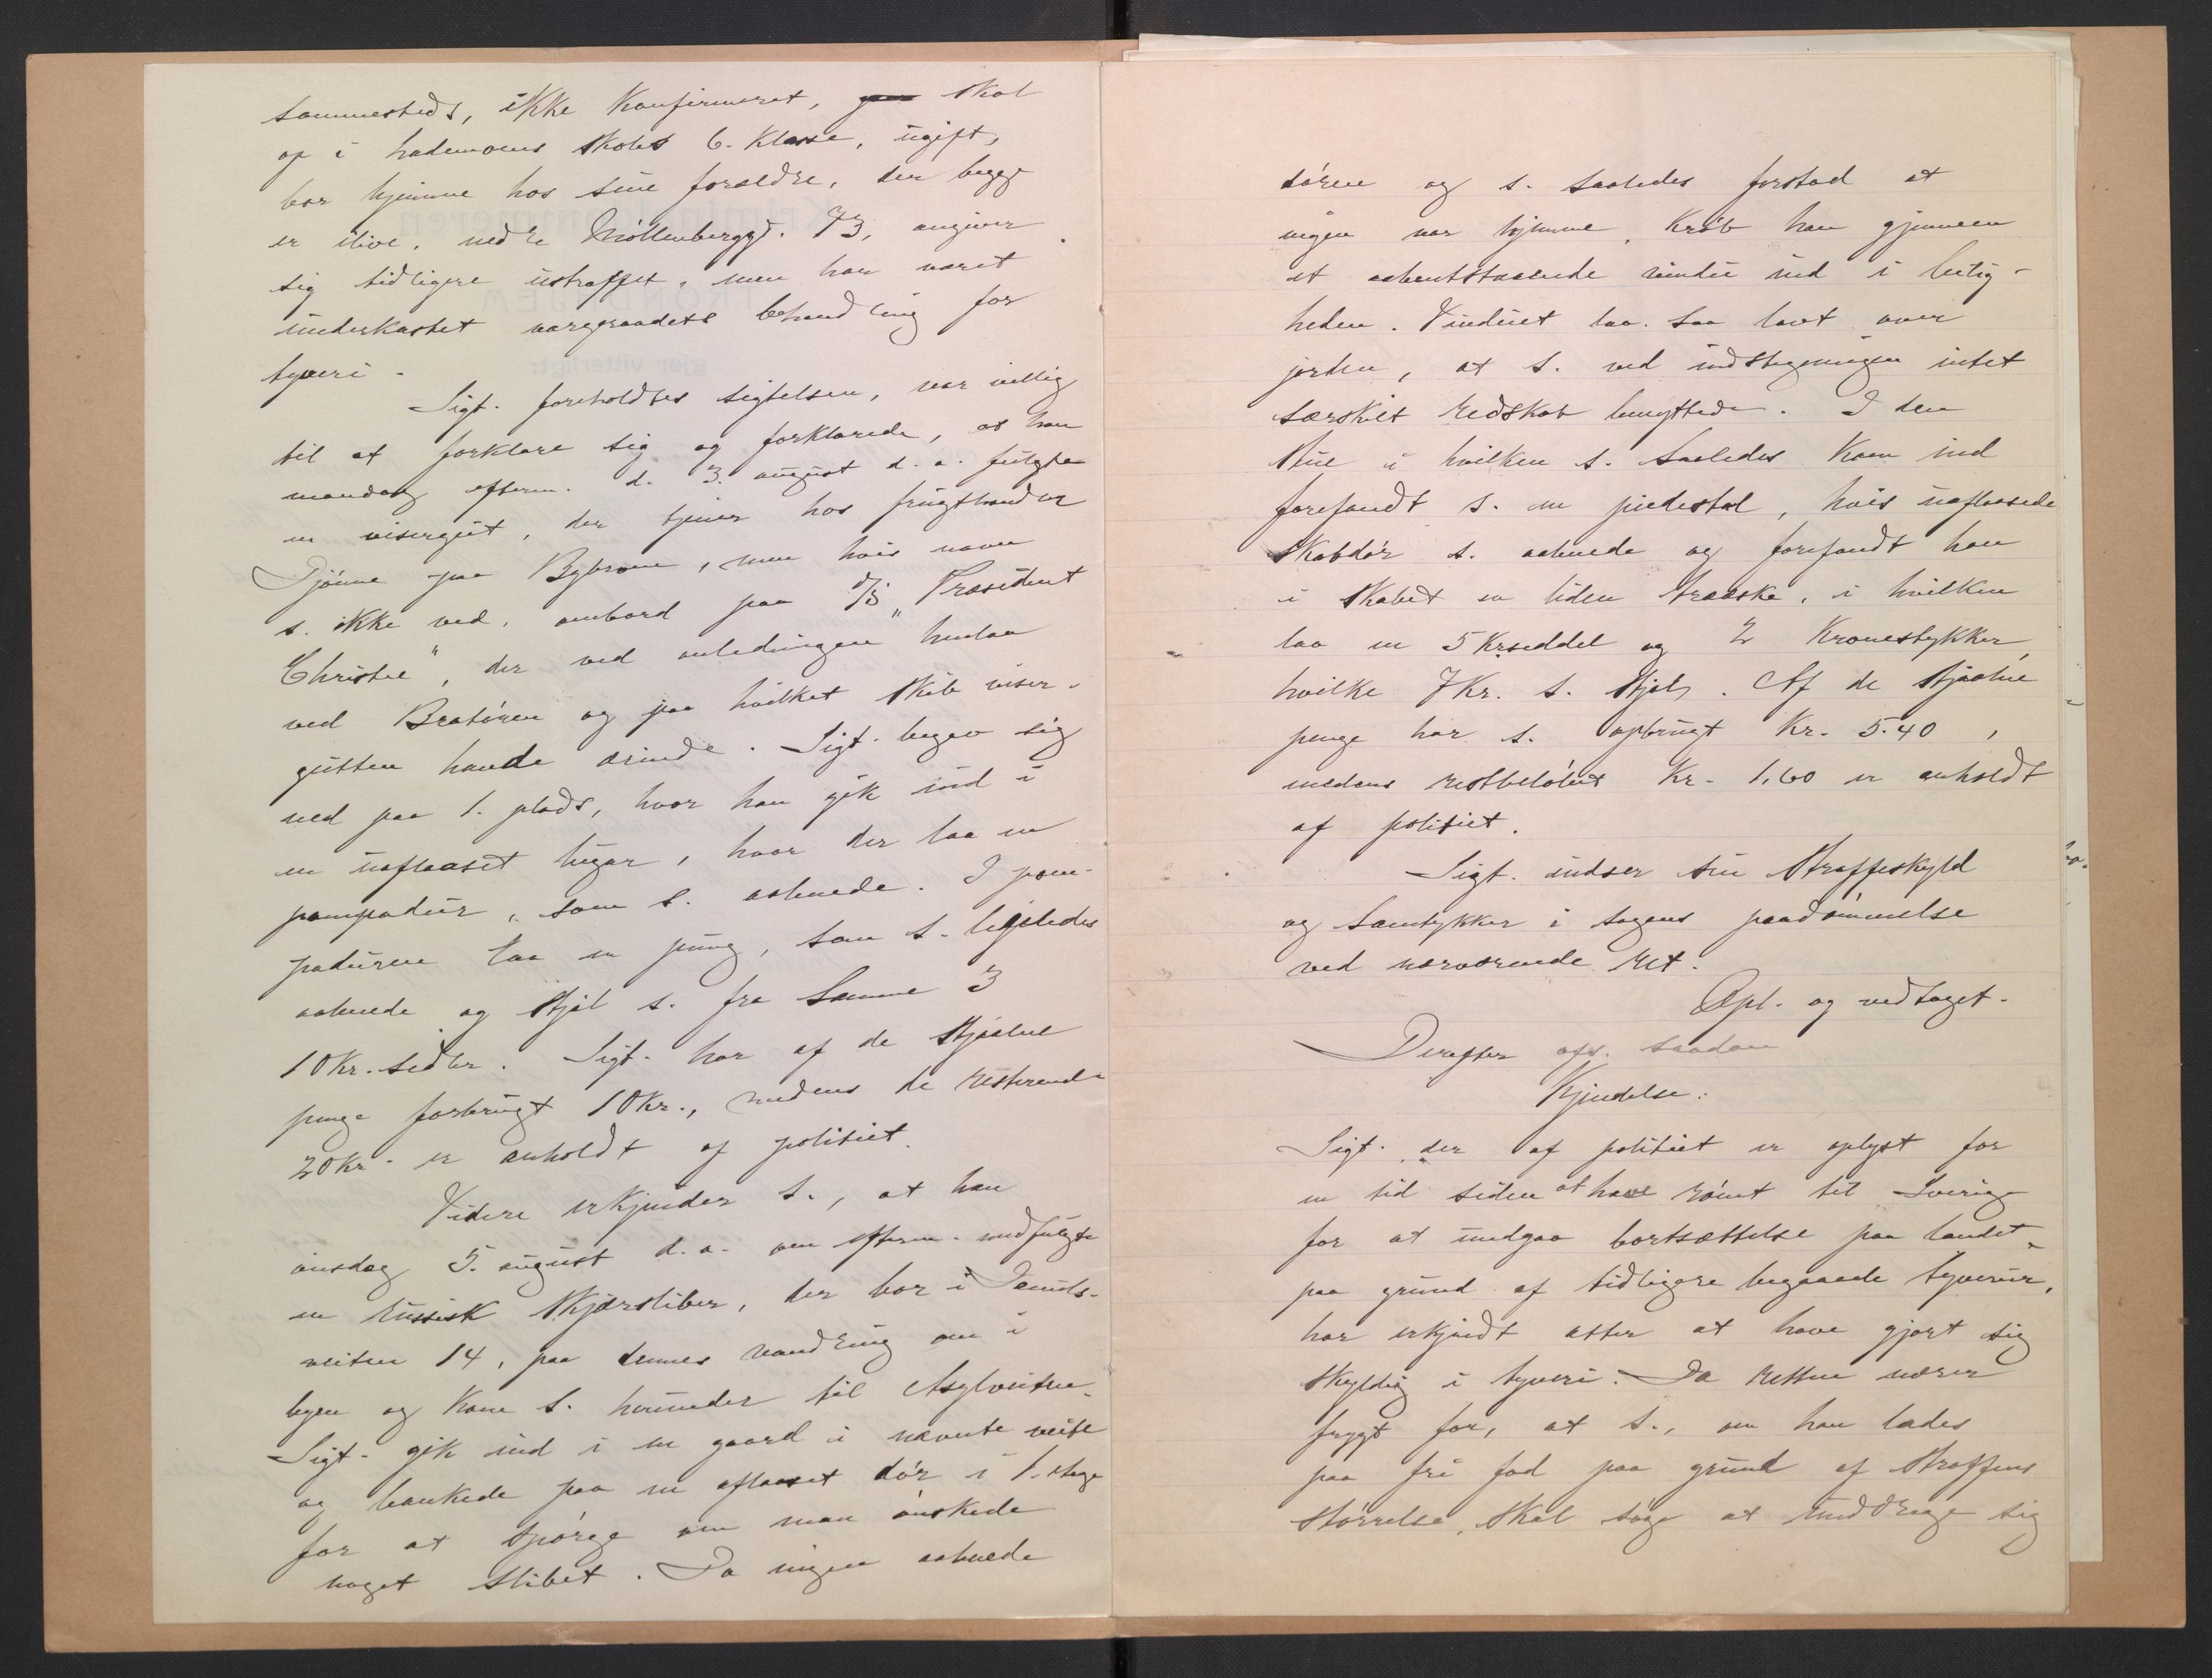 sammesteds, ikke konfirmeret, skal
op i lademoens skoles 6. klasse, ugift,
bor hjemme hos sine forældre, der begge
er ilive, nedre Møllenberggt. 73, angiver
sig tidligere ustraffet, men har været
underkastet vergeraadets behandling for
tyveri.
Sigt. foreholdtes sigtelsen, var villig
til at forklare sig og forklarede, at han
mandag efterm. d. 3. august d. a. fulgte
en visergut, der tjener hos frugthandler
Tjønne paa Bybroen, men hvis navn
s. ikke ved, ombord paa d/s "Præsident
Christie", der ved anledningen henlaa
ved Bratøren og paa hvilket skib viser-
gutten havde ærinde. Sigt. begav sig
ned paa 1. plads, hvor han gik ind i
en uaflaaset lugar, hvor der laa en
pompadur, som s. aabnede. I pom-
paduren laa en pung, som s. ligeledes
aabnede og stjal s. fra samme 3
10 kr. sedler. Sigt. har af de stjaalne
penge forbrugt 10 kr., medens de resterende
20 kr. er anholdt af politiet.
Videre erkjender s., at han
onsdag 5. august d. a. om efterm. medfulgte
en russisk skjærsliber, der bor i Danids-
veiten 14, paa dennes vandring om i
byen og kom s. herunder til Asylveiten.
Sigt. gik ind i en gaard i nævnte veite
og bankede paa en aflaaset dør i 1. etage
for at spørge om man ønskede
noget slibet. Da ingen aabnede
døren og s. saaledes forstod at
ingen var hjemme, krøb han gjennem
et aabentstaaende vindu ind i leilig-
heden. Vinduet laa saa lavt over
jorden, at s. ved indstigningen intet
særskilt redskab benyttede. I den
stue i hvilken s. saaledes kom ind
forefandt s. en piedestal, hvis uaflaasede
skabdør s. aabnede og forefandt han
i skabet en liden trææske, i hvilken
laa en 5 kr seddel og 2 kronestykker,
hvilke 7 kr. s. stjal. Af de stjaalne
penge har s. opbrugt kr. 5.40,
medens restbeløbet kr. 1.60 er anholdt
af politiet.
Sigt. indser sin straffeskyld
og samtykker i sagens paadømmelse
ved nærværende ret.
Opl. og vedtaget.
Derefter afs. saadan
Kjendelse:
Sigt. der af politiet er oplyst for
en tid siden at have rømt til Sverige
for at undgaa bortsættelse paa landet
paa grund af tidligere begaaede tyverier,
har erkjendt atter at have gjort sig
skyldig i tyveri. Da retten nærer
frygt for, at s., om han lades
paa fri fod paa grund af straffens
størrelse, skal søge at unddrage sig